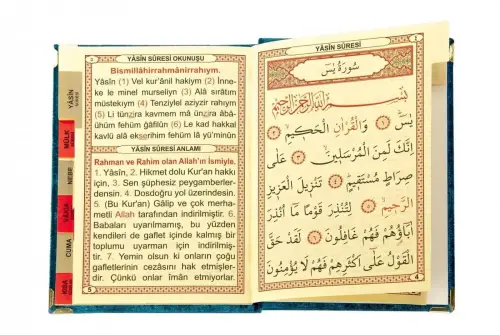 YÂSÎN SÛRESİ OKUNUŞU
Bismillâhirrahmânirrahıym.
Yâsîn (1) Vel kur'ânil hakiym (2) İnne-
ke le minel murseliyn (3) Alâ sırâtım
müstekıym (4) Tenziylel azizir rahıym
(5) Li tünzira kavmem mâ ünzira âbâü-
ühüm fehüm ğâfilûn (6) Le kad hakkal
kavlü alâ ekserihim fehüm lâ yü'minûn
YÂSÎN SÛRESİ ANLAMI
Rahman ve Rahim olan Allah'ın İsmiyle.
1. Yâsîn, 2. Hikmet dolu Kur'an hakkı
için, 3. Sen şüphesiz peygamberler-
densin. 4. Dosdoğru yol üzerindesin.
5. (Bu Kur'an) Gâlip ve çok merha-
metli Allah tarafından indirilmiştir. 6.
Babaları uyarılmamış, bu yüzden
kendileri de gaflet içinde kalmış bir
toplumu uyarman için indirilmiş-
tir. 7. Yemin olsun ki onların çoğu
gafletlerinin cezasını hak etmişler-
dir. Çünkü onlar îman etmiyorlar.
5
YÂSÎN
MÜLK
NEBE
CUMA
YÂSÎN SÛRESİ
سُورَةُ يٰسٓ
بِسْمِ اللّٰهِ الرَّحْمٰنِ الرَّحِيمِ
يٰسٓ ﴿١﴾ وَالْقُرْاٰنِ الْحَكِيمِ ﴿٢﴾
اِنَّكَ لَمِنَ الْمُرْسَلِينَ ﴿٣﴾ عَلٰى
صِرَاطٍ مُسْتَقِيمٍ ﴿٤﴾ تَنْزِيلَ الْعَزِيزِ
الرَّحِيمِ ﴿٥﴾ لِتُنْذِرَ قَوْمًا مَٓا اُنْذِرَ
اٰبَٓاؤُ۬هُمْ فَهُمْ غَافِلُونَ ﴿٦﴾ لَقَدْ حَقَّ
الْقَوْلُ عَلٰٓى اَكْثَرِهِمْ فَهُمْ لَا يُؤْمِنُونَ
4